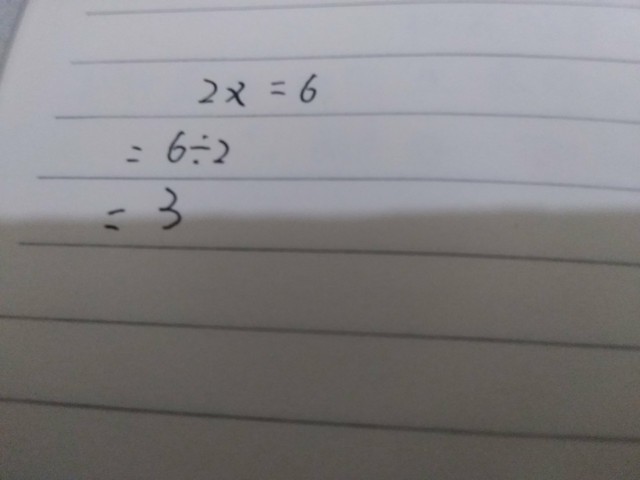 2x = 6
= 6÷2
= 3